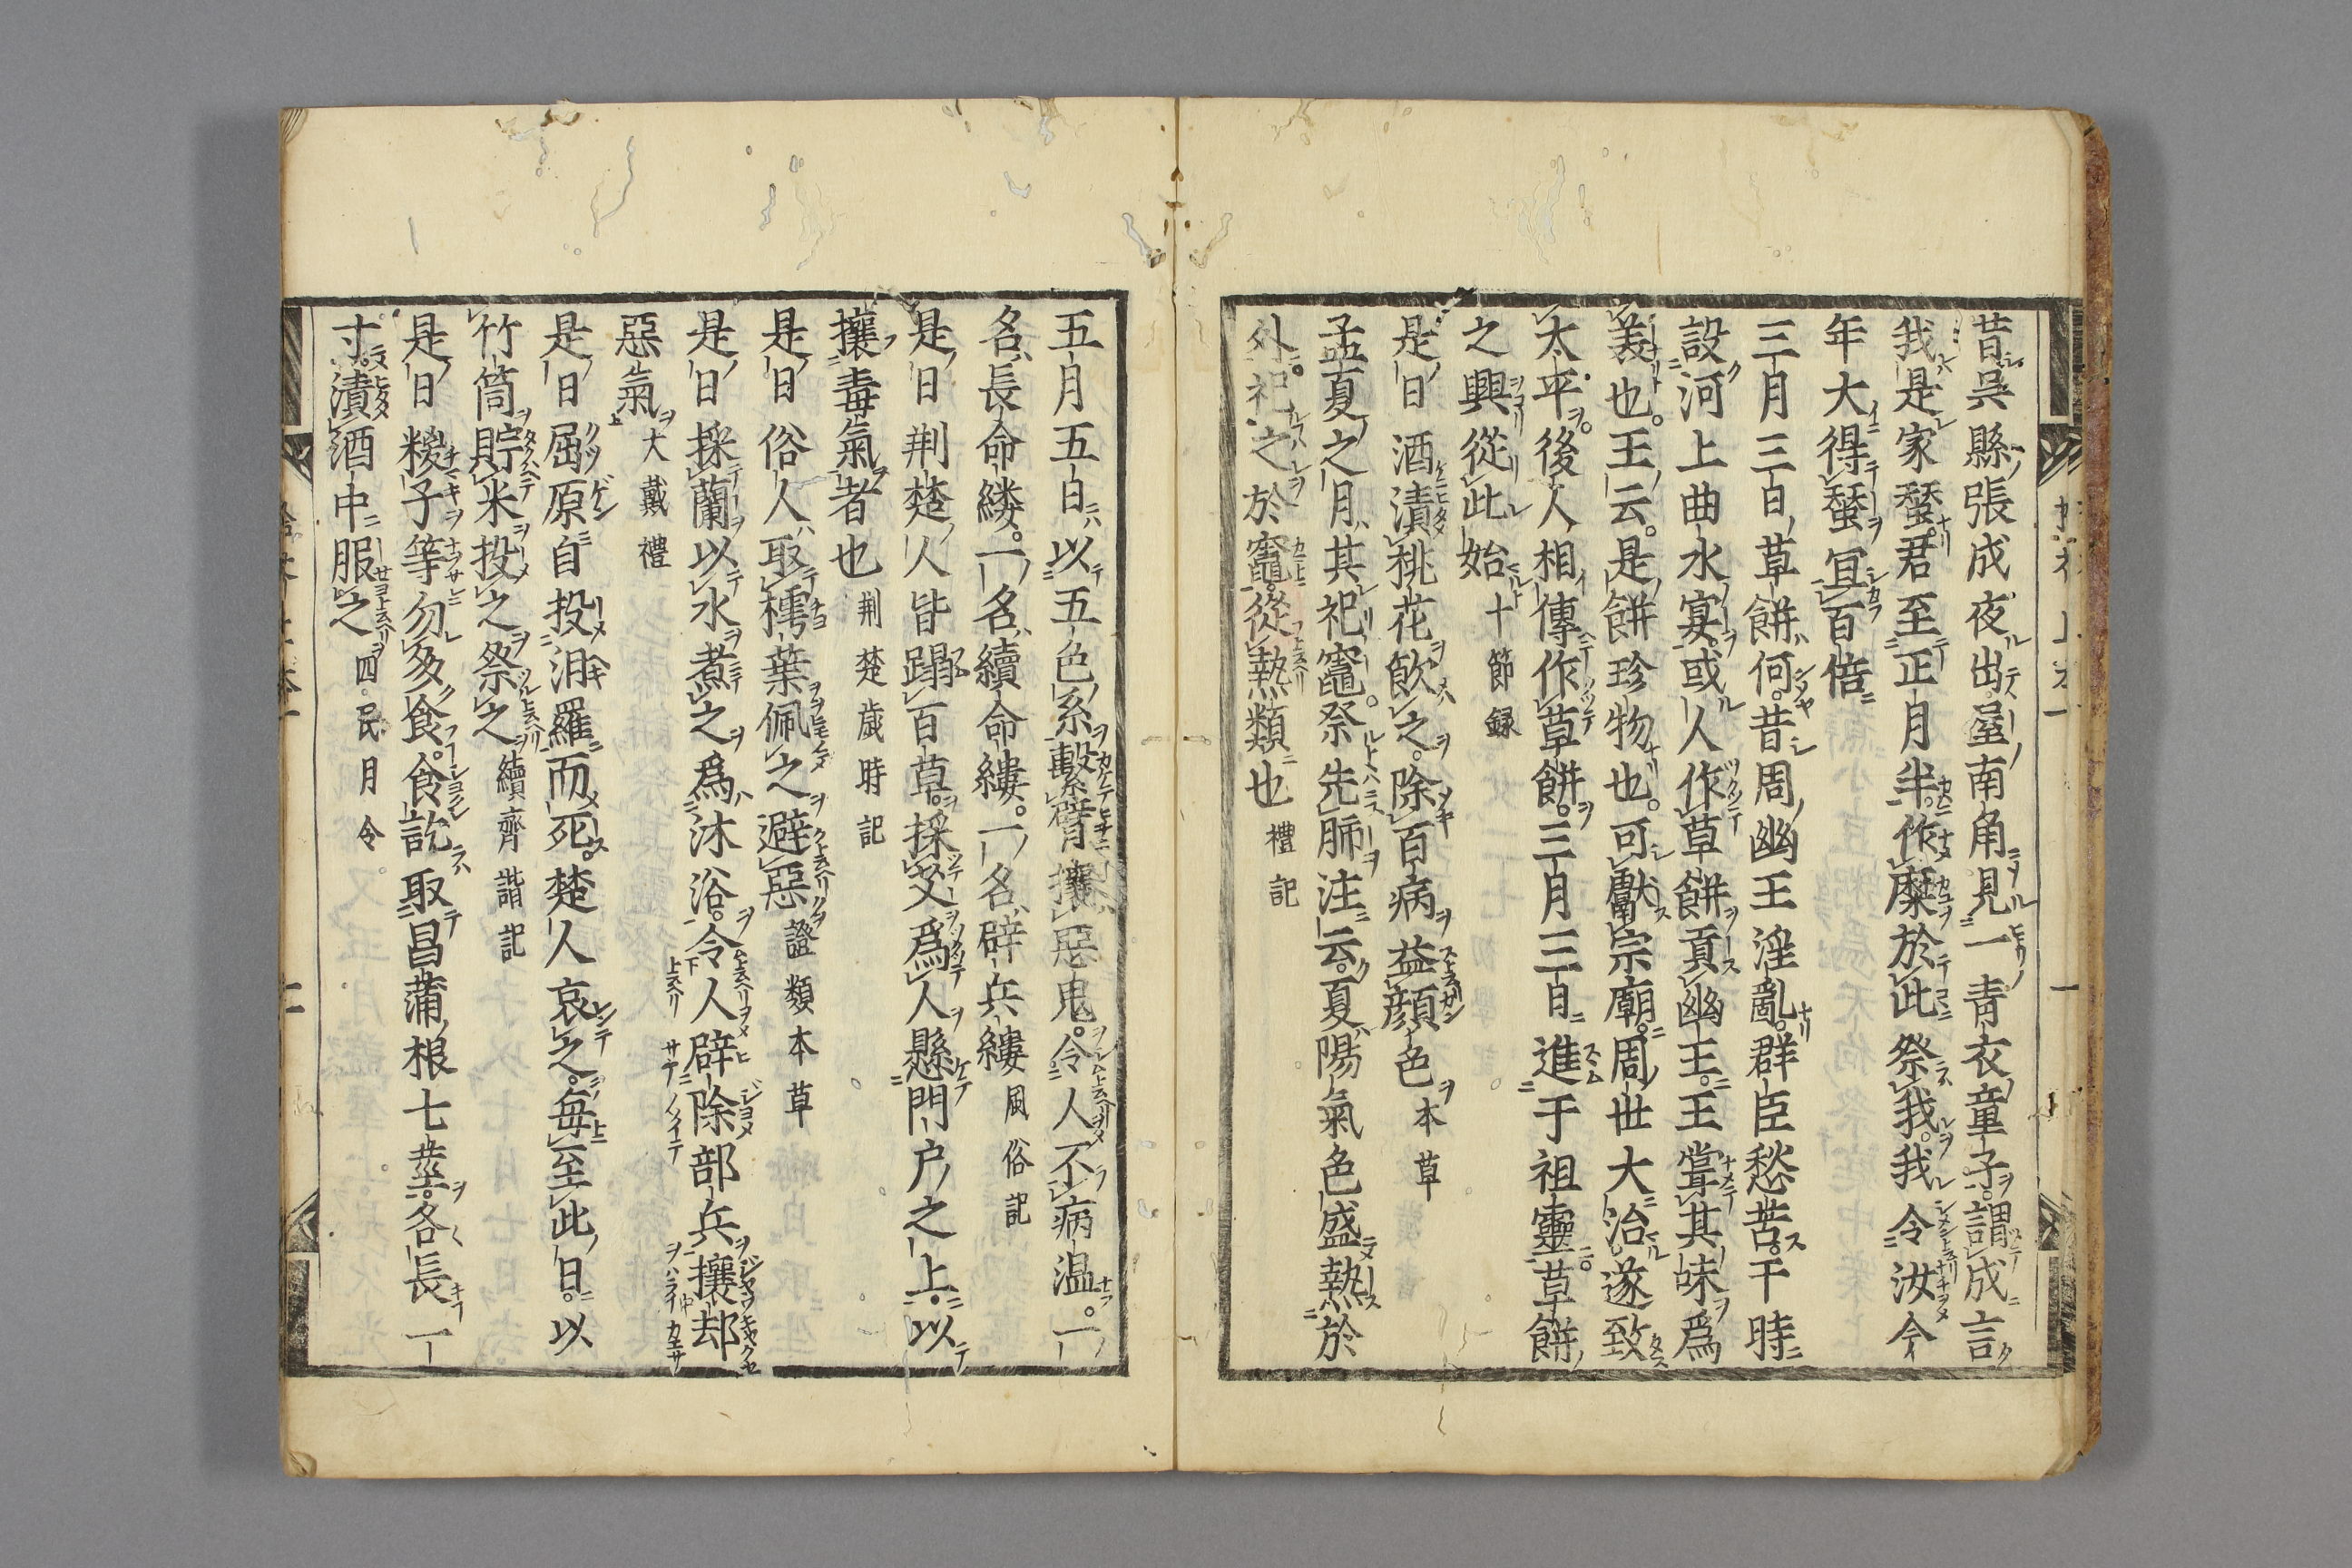 昔吳縣張成夜出屋南角見一青衣童子謂成言
我是家蠶君至正月半作糜於此祭我我令汝今
年大得蠶冝百倍
三月三日草餅何昔周幽王淫亂群臣愁苦于時
設河上曲水宴或人作草餅貢幽王王甞其味爲
義也王云是餅珍物也可獻宗廟周世大治遂致
太平後人相傳作草餅三月三日進于祖靈草餅
之興從此始十節録
是日酒漬桃花飲之除百病益顔色本草
孟夏之月其祀竈祭先肺注云夏陽氣色盛熱於
外祀之於竈從熱類也禮記
五月五日以五色糸繫臂攘惡鬼令人不病温一
名長命縷一名續命縷一名辟兵縷風俗記
是日荆楚人皆蹋百草採艾爲人懸門户之上以
攘毒氣者也荆楚歳時記
是日俗人取樗葉佩之避惡證類本草
是日採蘭以水煮之爲沐浴令人辟除部兵攘却
惡氣大戴禮
是日屈原自投汨羅而死楚人哀之毎至此日以
竹筒貯米投之祭之續齊諧記
是日糉子等勿多食食訖取昌蒲根七莖各長一
寸漬酒中服之四民月令